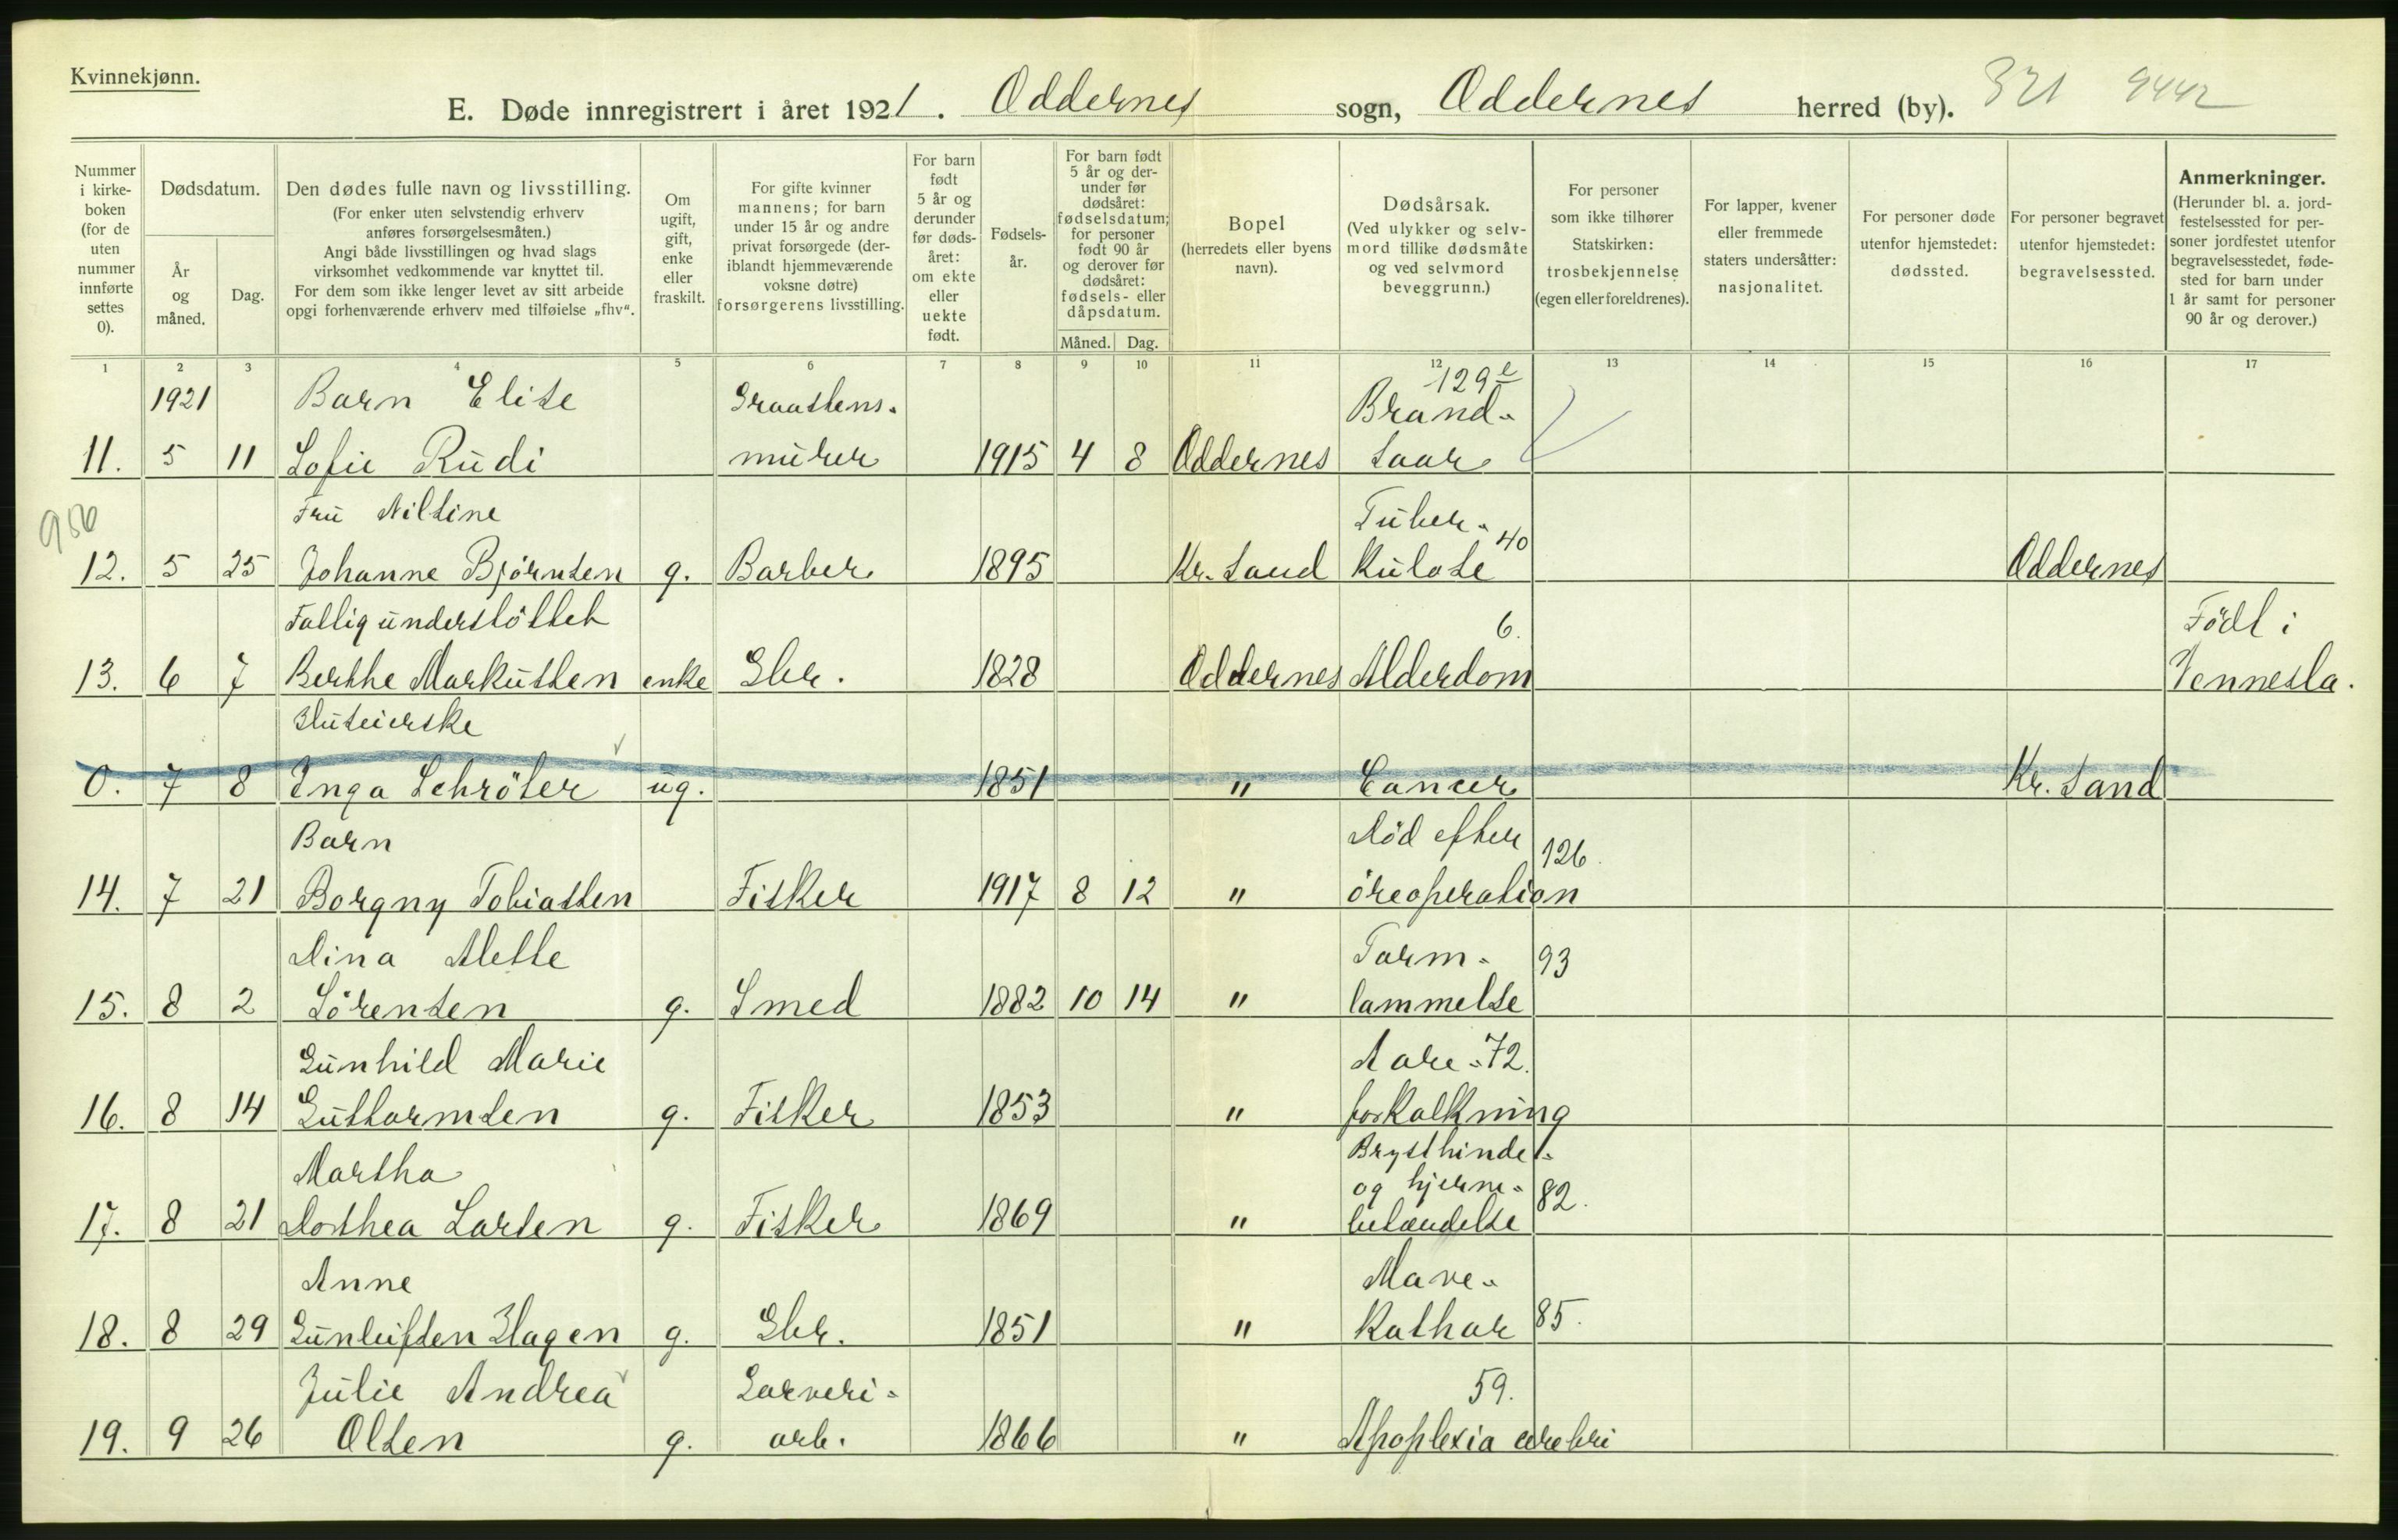 Kvinnekjønn.
E. Døde innregistrert i året 1921. Oddernes sogn, Oddernes herred (by). 321 9442
Nummer i kirke-boken (for de uten nummer innførte settes 0).
Dødsdatum.
År og måned.
Dag.
Den dødes fulle navn og livsstilling.
(For enker uten selvstendig erhverv
anføres forsørgelsesmåten.)
Angi både livsstillingen og hvad slags
virksomhet vedkommende var knyttet til.
For dem som ikke lenger levet av sitt arbeide
opgi forhenværende erhverv med tilføielse „fhv“.
Om ugift, gift, enke eller fraskilt.
For gifte kvinner
mannens; for barn
under 15 år og andre
privat forsørgede (der-
iblandt hjemmeværende
voksne døtre)
forsørgerens livsstilling.
For barn født 5 år og derunder før døds-året: om ekte eller uekte født.
Fødsels-år.
For barn født
5 år og der-
under før
dødsåret:
fødselsdatum;
for personer
født 90 år
og derover før
dødsåret:
fødsels- eller
dåpsdatum.
Måned. Dag.
Bopel
(herredets eller byens
navn).
Dødsårsak.
(Ved ulykker og selv-
mord tillike dødsmåte
og ved selvmord
beveggrunn.)
For personer
som ikke tilhører
Statskirken:
trosbekjennelse
(egen eller foreldrenes).
For lapper, kvener
eller fremmede
staters undersåtter:
nasjonalitet.
For personer døde
utenfor hjemstedet:
dødssted.
For personer begravet
utenfor hjemstedet:
begravelsessted.
Anmerkninger.
(Herunder bl. a. jord-
festelsessted for per-
soner jordfestet utenfor
begravelsesstedet, føde-
sted for barn under
1 år samt for personer
90 år og derover.)
1 2 3 4 5 6 7 8 9 10 11 12 13 14 15 16 17
1921 Barn Elise Graastens- 129e Brand-
11. 5 11 Sofie Rudi murer 1915 4 8 Oddernes saar
956 Fru Nilsine Tuber- 40
12. 5 25 Johanne Bjørnsen g. Barber 1895 Kr.sand kulose Oddernes
Fattigunderstøttet 6. Født i
13. 6 7 Berthe Markussen enke Gbr. 1828 Oddernes Alderdom Vennesla.
Huseierske
0. 7 8 Inga Schrøter ug. 1851 " Cancer Kr. sand
Barn Død efter 126.
14. 7 21 Borgny Tobiassen Fisker 1917 8 12 " øreoperation
Dina Alette Tarm- 93
15. 8 2 Sørensen g. Smed 1882 10 14 " lammelse
Gunhild Marie Aare- 72.
16. 8 14 Guttormsen g. Fisker 1853 " forkalkning
Martha Brysthinde-
og hjerne- 82.
17. 8 21 Dorthea Larsen g. Fisker 1869 " betændelse
Anne Mave-
18. 8 29 Gunleifsen Hagen g. Gbr. 1851 " kathar 85.
Julie Andrea Garveri- 59.
19. 9 26 Olsen g. arb. 1866 " Apoplexia cerebri